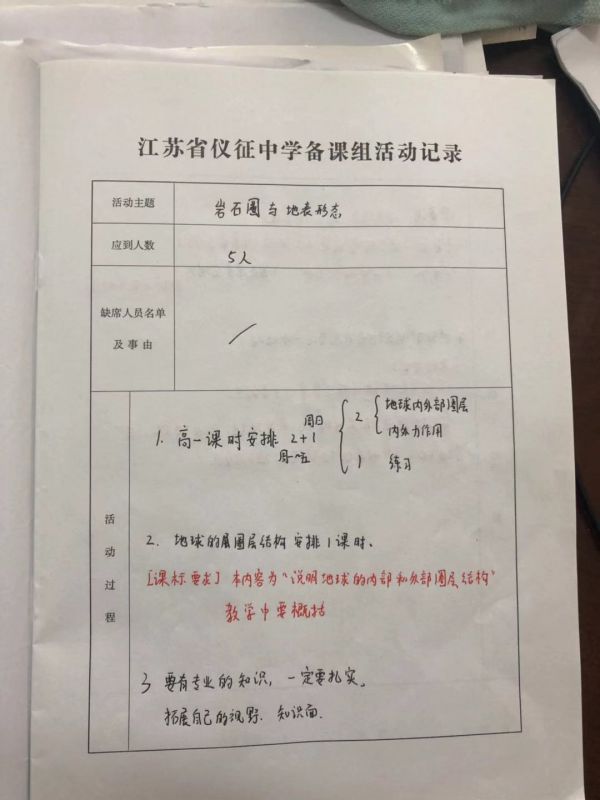 江苏省仪征中学备课组活动记录
活动主题
岩石圈与地表形态
应到人数
5人
缺席人员名单
及事由
活动过程
周日
1. 高一课时安排 2+1
周一~五
2
地球内外部圈层
内外力作用
1 练习
2. 地球的层圈层结构安排1课时、
[课标要求] 本内容为“说明地球的内部和外部圈层结构”
教学中要概括
3 要有专业的知识, 一定要扎实。
拓展自己的视野. 知识面.